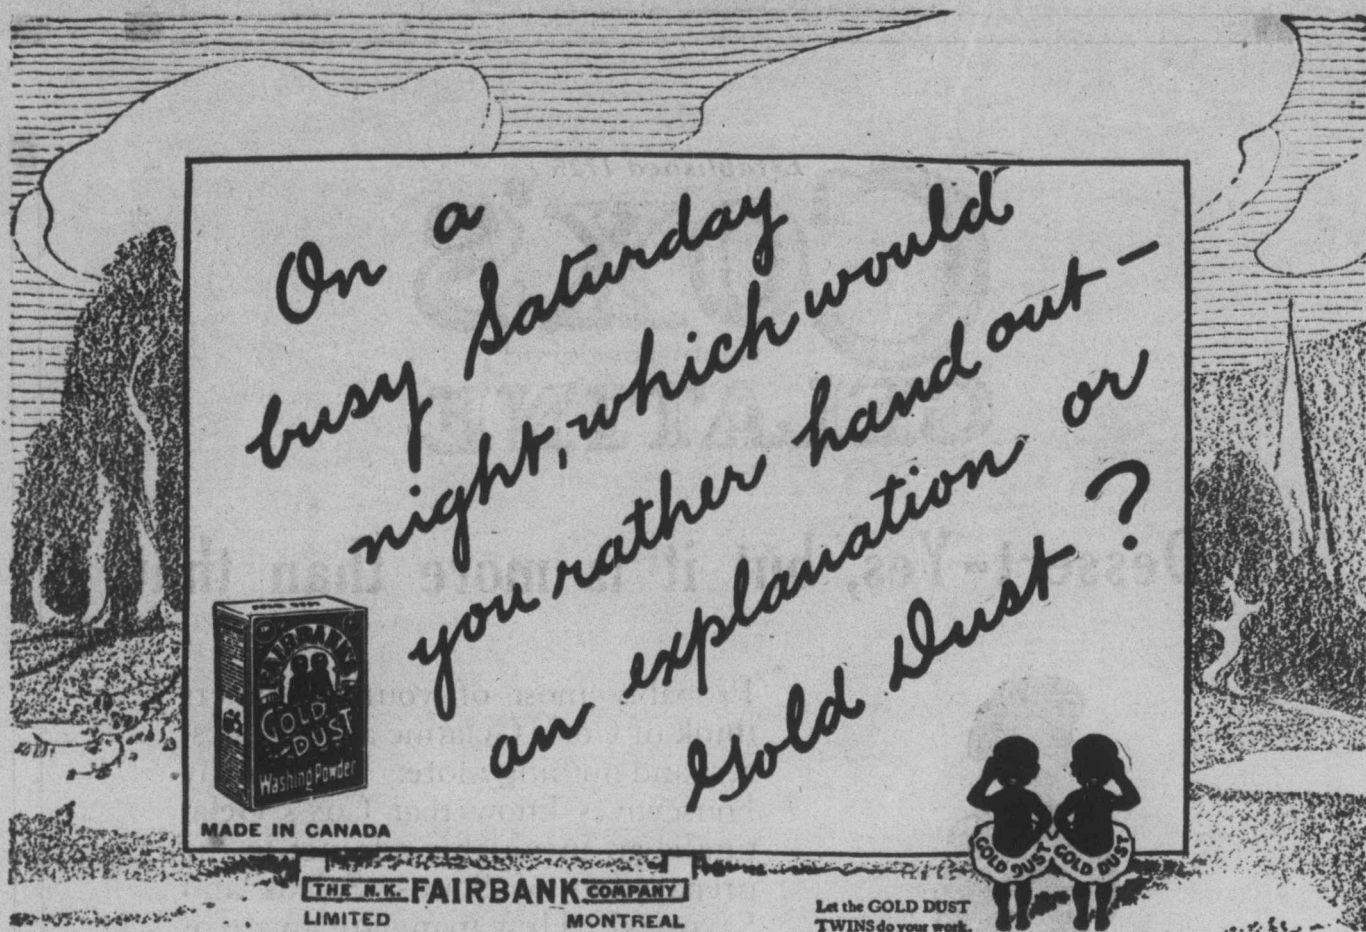 On a
busy Saturday
night, which would
you rather hand out—
an explanation or
Gold Dust?
FAIRBANK'S
GOLD
DUST
Washing Powder
MADE IN CANADA
THE N.K. FAIRBANK COMPANY
LIMITED MONTREAL
GOLD DUST GOLD DUST
Let the GOLD DUST
TWINS do your work.